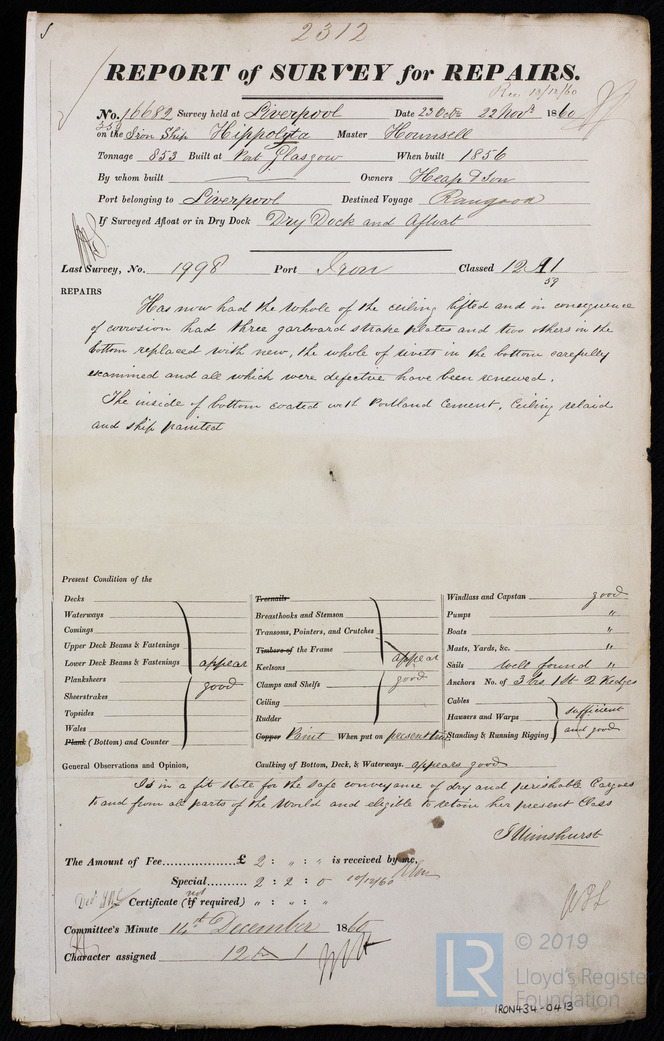 2312
REPORT of SURVEY for REPAIRS.
Rec. 13/12/60
No. 16682 Survey held at Liverpool Date 23 Octr 22 Novr 1860
on the Iron Ship Hippolyta Master Hounsell
Tonnage 853 Built at Port Glasgow When built 1856
By whom built Owners Heap & Son
Port belonging to Liverpool Destined Voyage Rangoon
If Surveyed Afloat or in Dry Dock Dry Dock and Afloat
Last Survey, No. 1998 Port Iron Classed 12 A1
59
REPAIRS
Has now had the whole of the ceiling lifted and in consequence
of corrosion had three garboard strake plates and two others in the
bottom replaced with new, the whole of rivets in the bottom carefully
examined and all which were defective have been renewed.
The inside of bottom coated with Portland Cement. Ceiling relaid
and ship painted
Present Condition of the
Decks
Waterways
Comings
Upper Deck Beams & Fastenings
Lower Deck Beams & Fastenings appear
Planksheers good
Sheerstrakes
Topsides
Wales
Plank (Bottom) and Counter
Treenails
Breasthooks and Stemson
Transoms, Pointers, and Crutches
Timbers of the Frame appear
Keelsons
Clamps and Shelfs good
Ceiling
Rudder
Copper Paint When put on present time
Windlass and Capstan good
Pumps "
Boats "
Masts, Yards, &c. "
Sails well found "
Anchors No. of 3 Brs 1 St 2 Kedges
Cables
Hawsers and Warps sufficient
Standing & Running Rigging and good
General Observations and Opinion, Caulking of Bottom, Deck, & Waterways. appears good
Is in a fit state for the safe conveyance of dry and perishable Cargoes
to and from all parts of the World and eligible to retain her present Class
J Wimshurst
The Amount of Fee................£ 2 : " : " is received by me,
Special.......... 2 : 2 : 0 10/12/60
not
Certificate (if required) " : " : "
Committee's Minute 14th December 1860
Character assigned 12 A 1
LR
© 2019
Lloyd's Register
Foundation
IRON434-0413